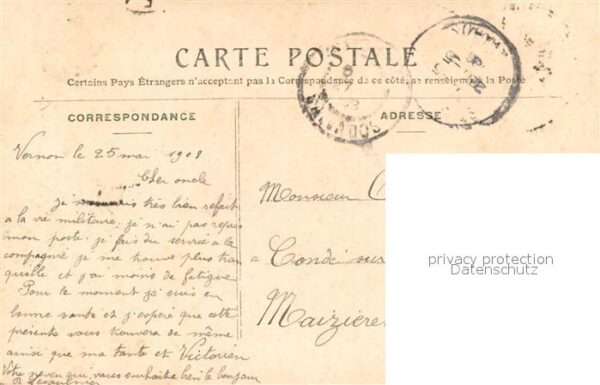 CARTE POSTALE
Certains Pays Étrangers n'acceptant pas la Correspondance de ce côté, se renseigner à la Poste
CORRESPONDANCE
ADRESSE
CALVADOS
Vernon le 25 mai 1908
Cher oncle
je très bien refait
a la vie militaire; je n'ai pas repris
mon poste; je fais du service a la
compagnie je me trouve plus tran
quille et j'ai moins de fatigue
Pour le moment je suis en
bonne santé et j'espère que cette
présente vous trouvera de même
ainsi que ma tante et Victorien
Votre neveu qui vous souhaite bien le bonjour
Monsieur
a Condé sur
Maizières
privacy protection
Datenschutz